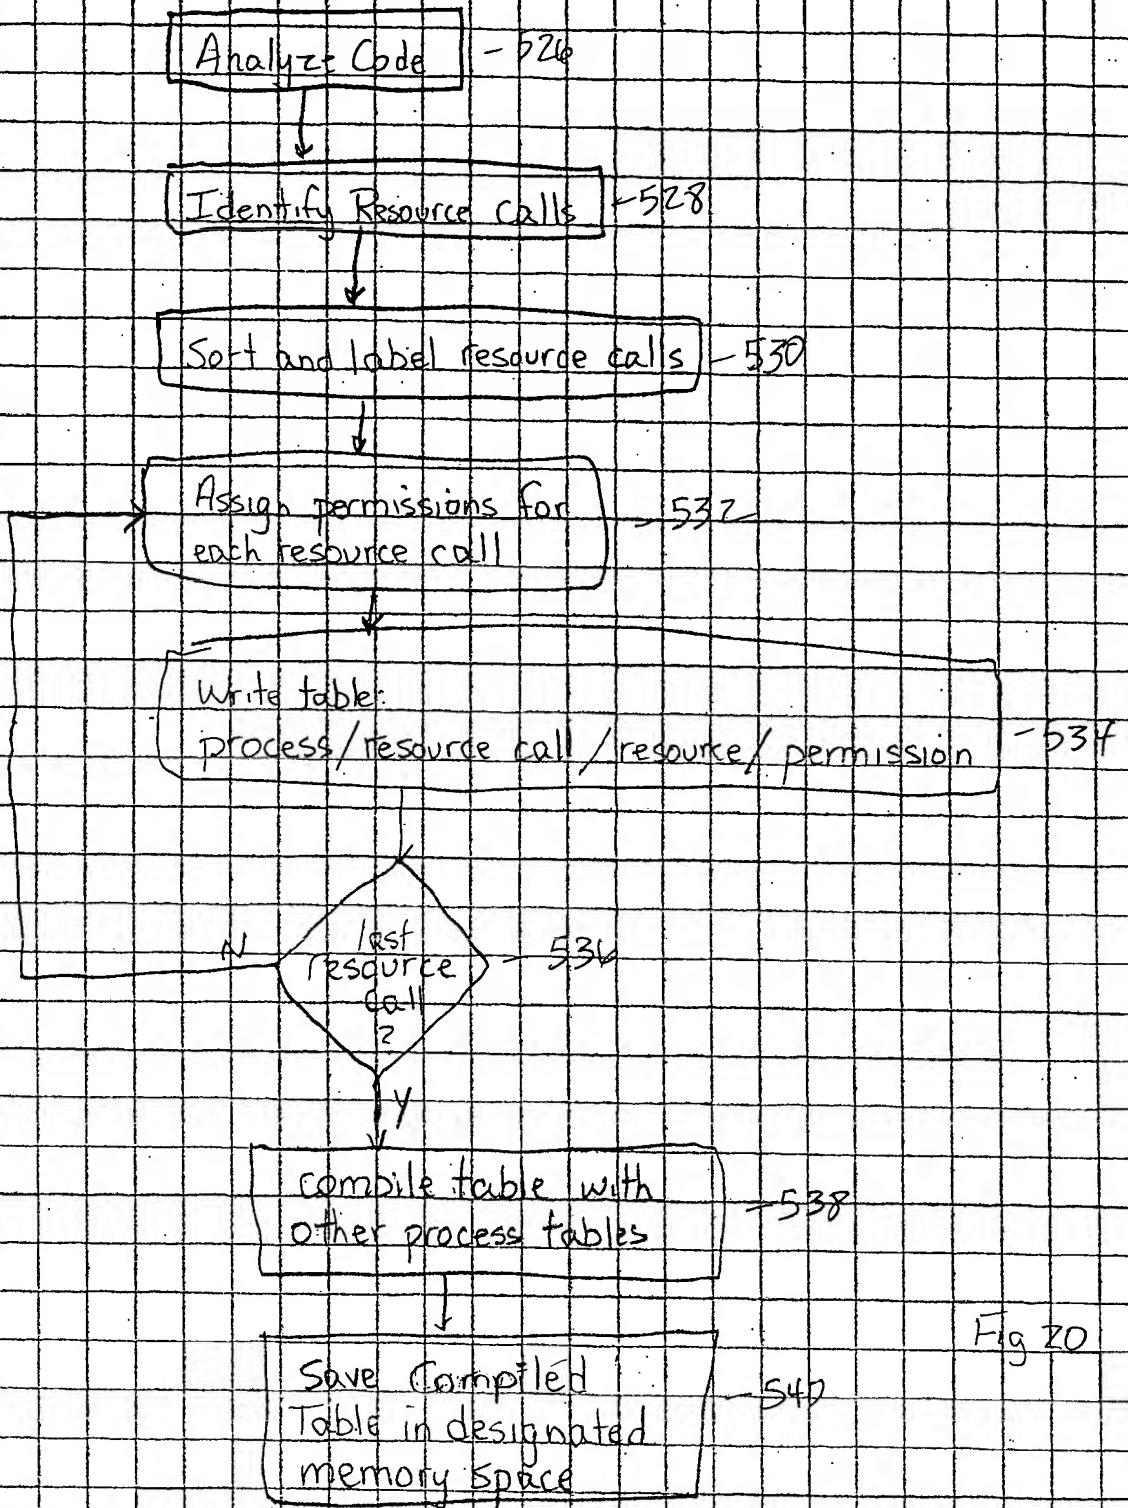 Analyze Code - 526
Identify Resource calls - 528
Sort and label resource calls - 530
Assign permissions for - 532
each resource call
Write table:
process/resource call/resource/permission - 534
N
last
resource
call
?
- 536
Y
compile table with
other process tables - 538
Fig 20
Save Compiled
Table in designated
memory space
- 540